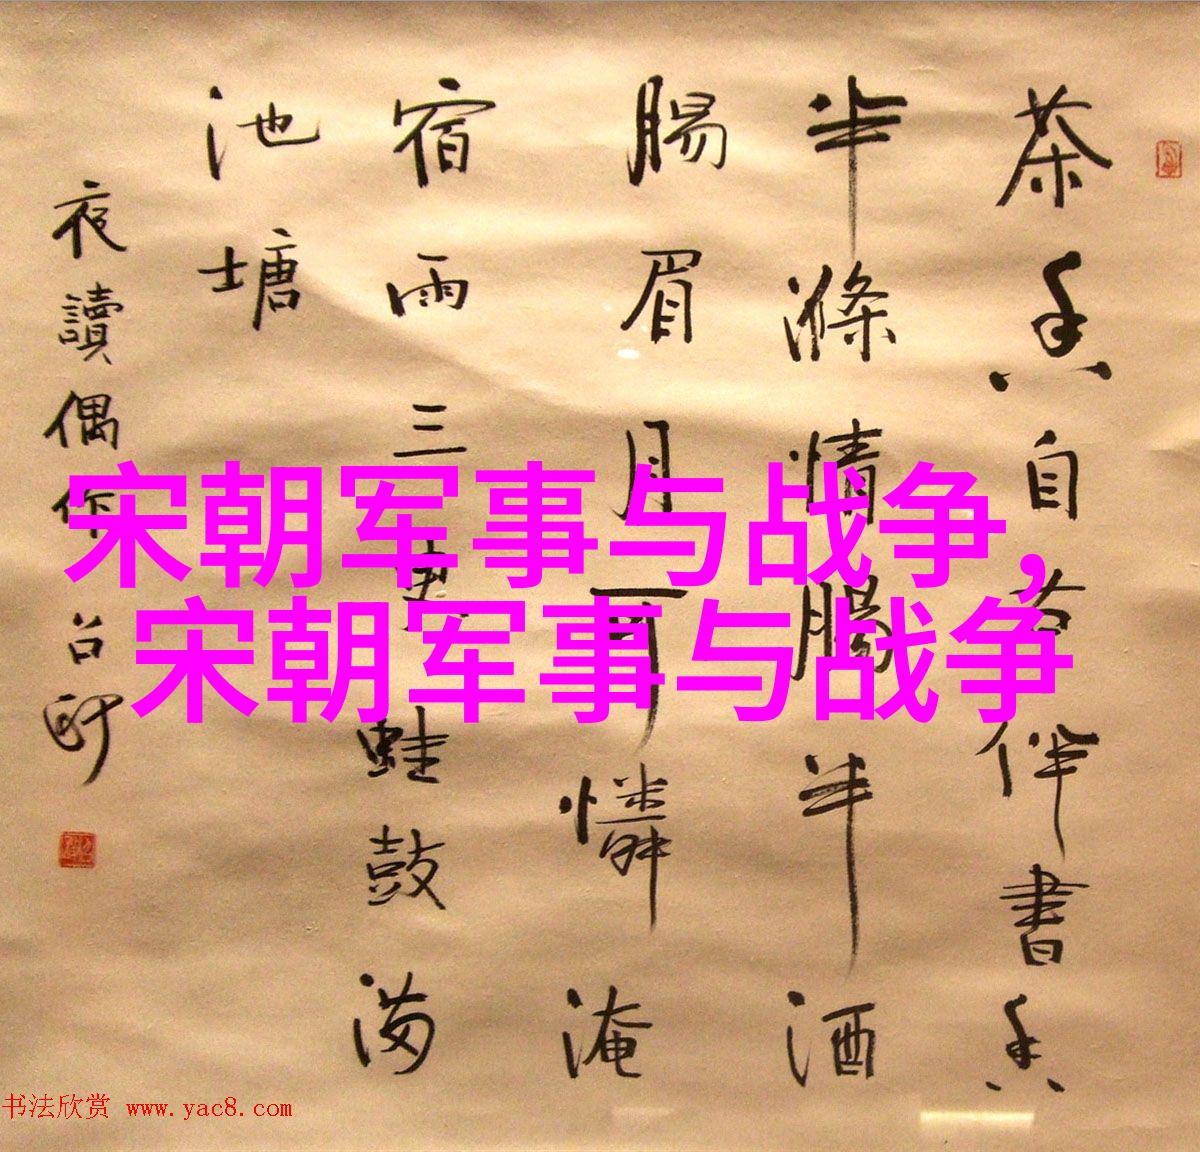 茶香自古伴書香
半滌情腸半酒
腸眉月可憐淹
宿雨三更蛙鼓满
池塘
夜讀偶作
宋朝军事与战争,
宋朝军事与战争
书法欣赏 www.yac8.com